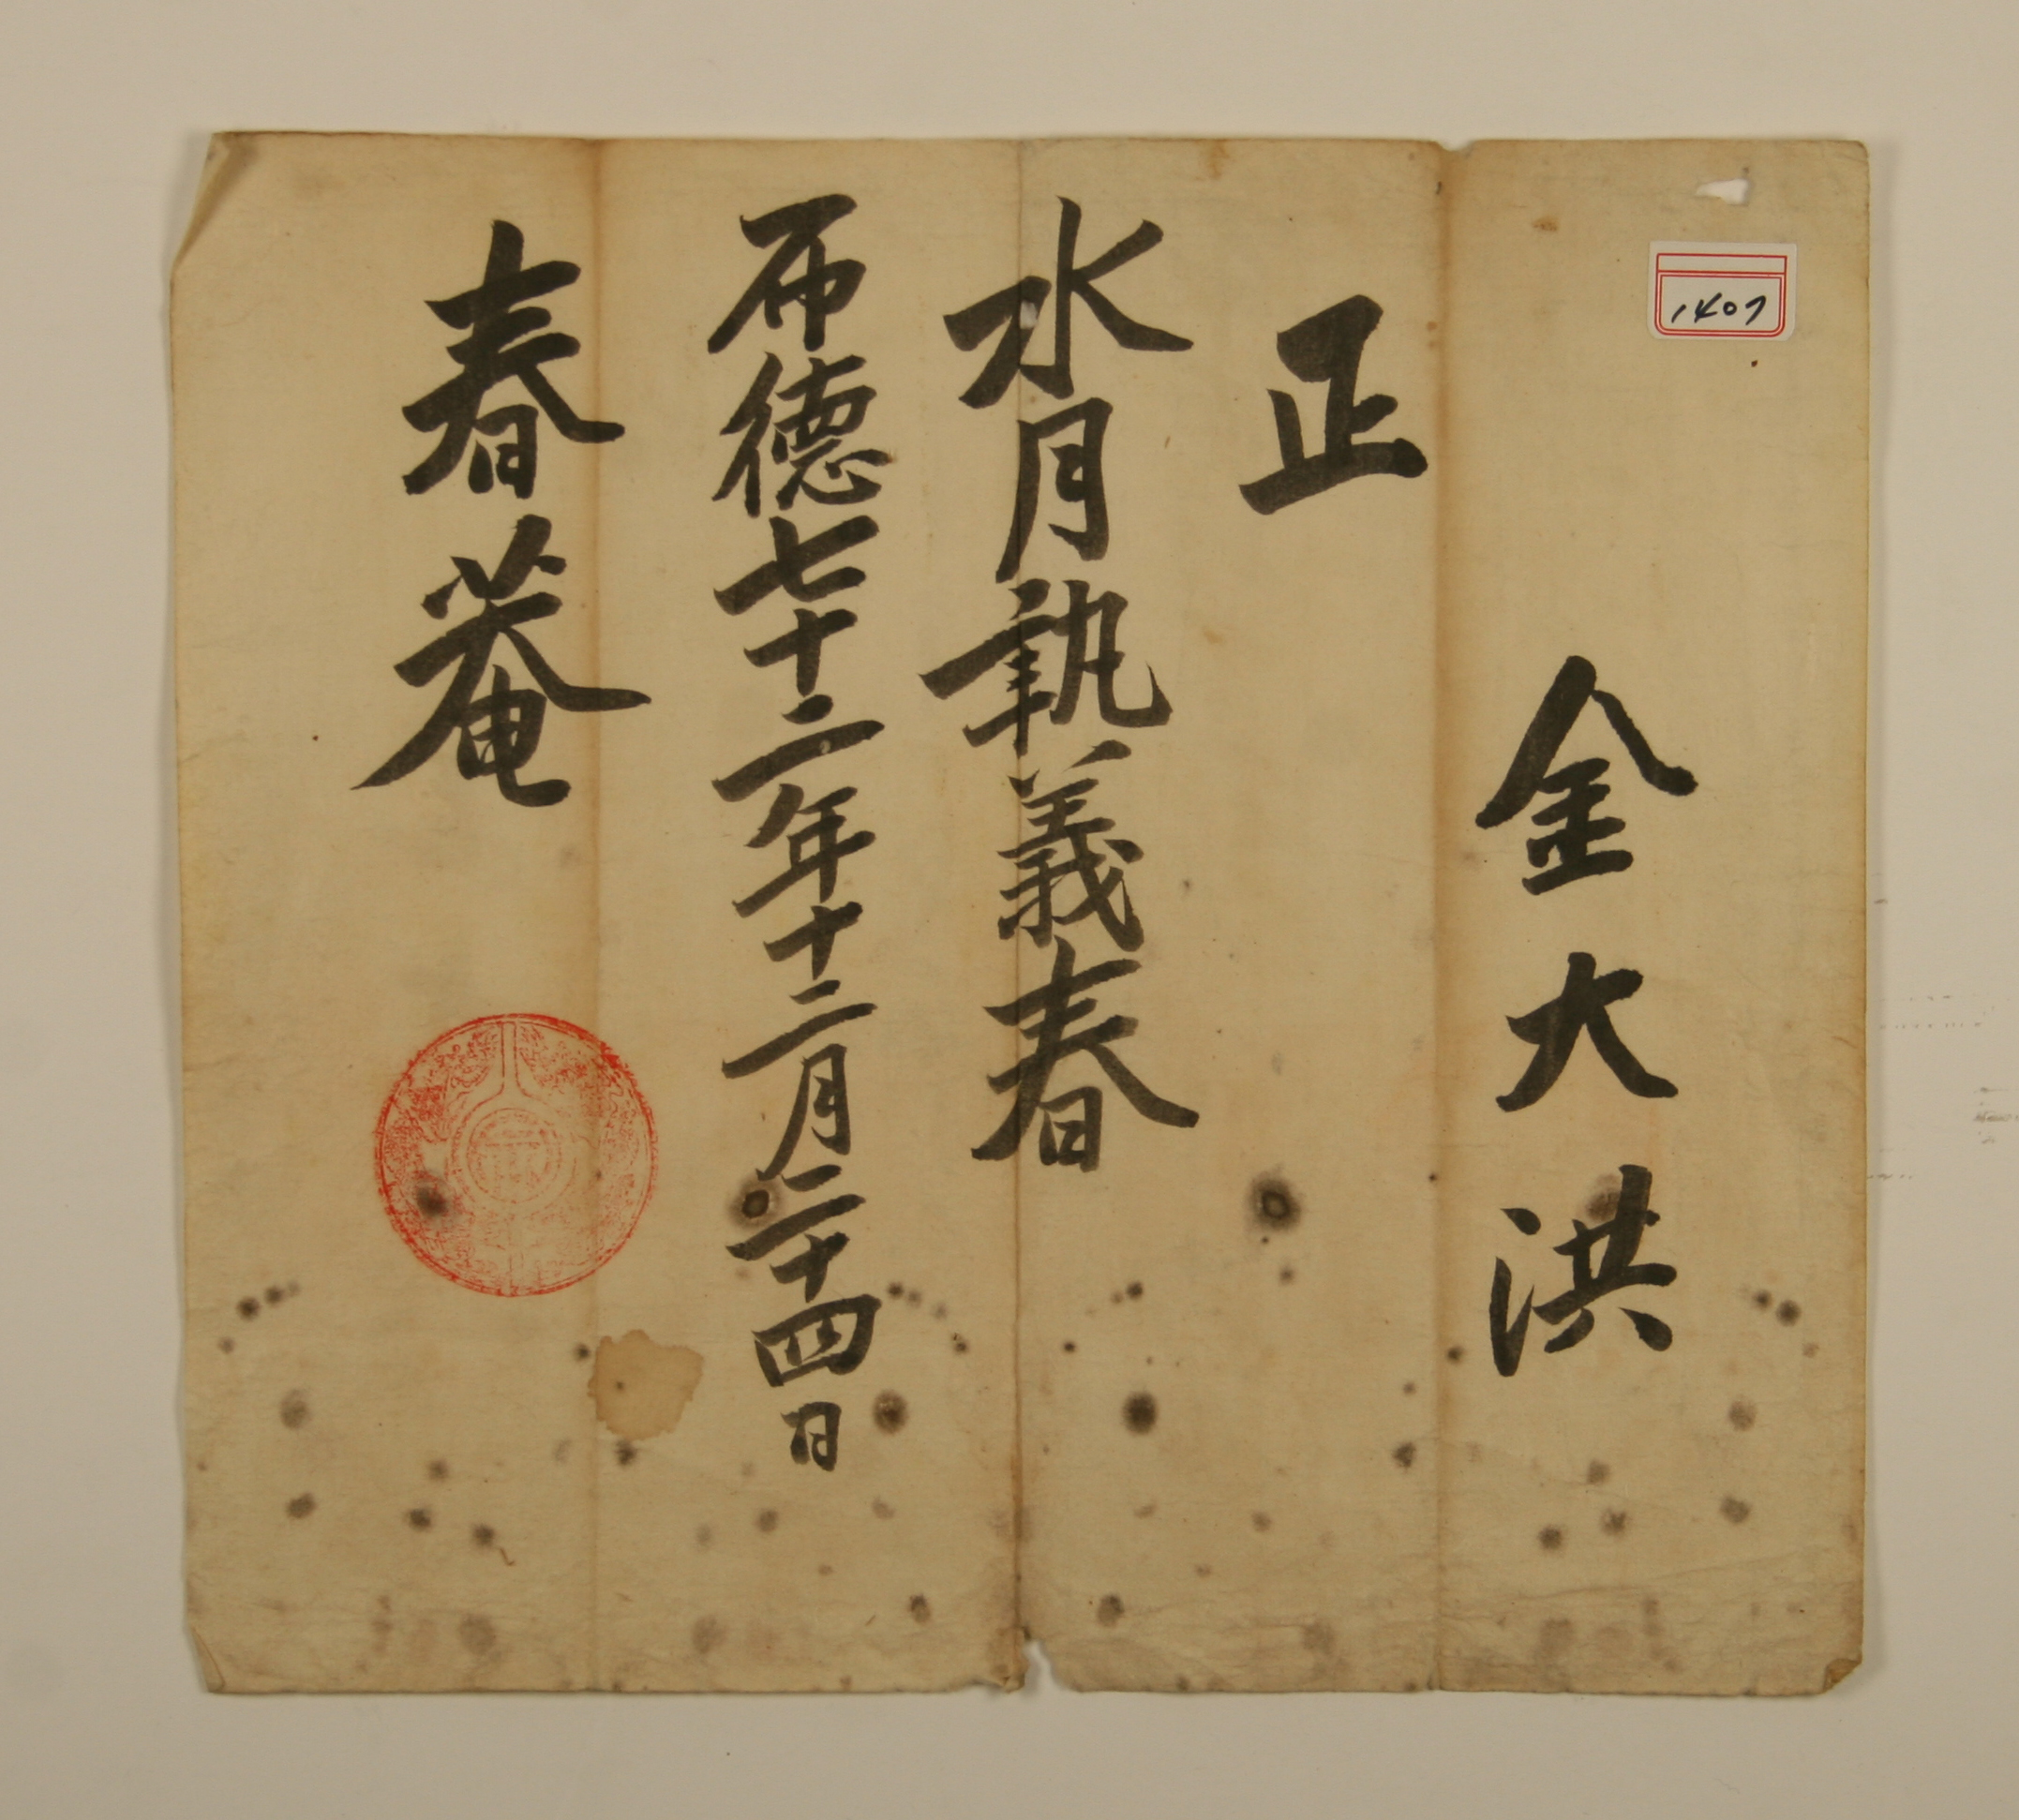 1407
金大洪
正
水月執義春
布德七十二年十二月二十四日
春菴